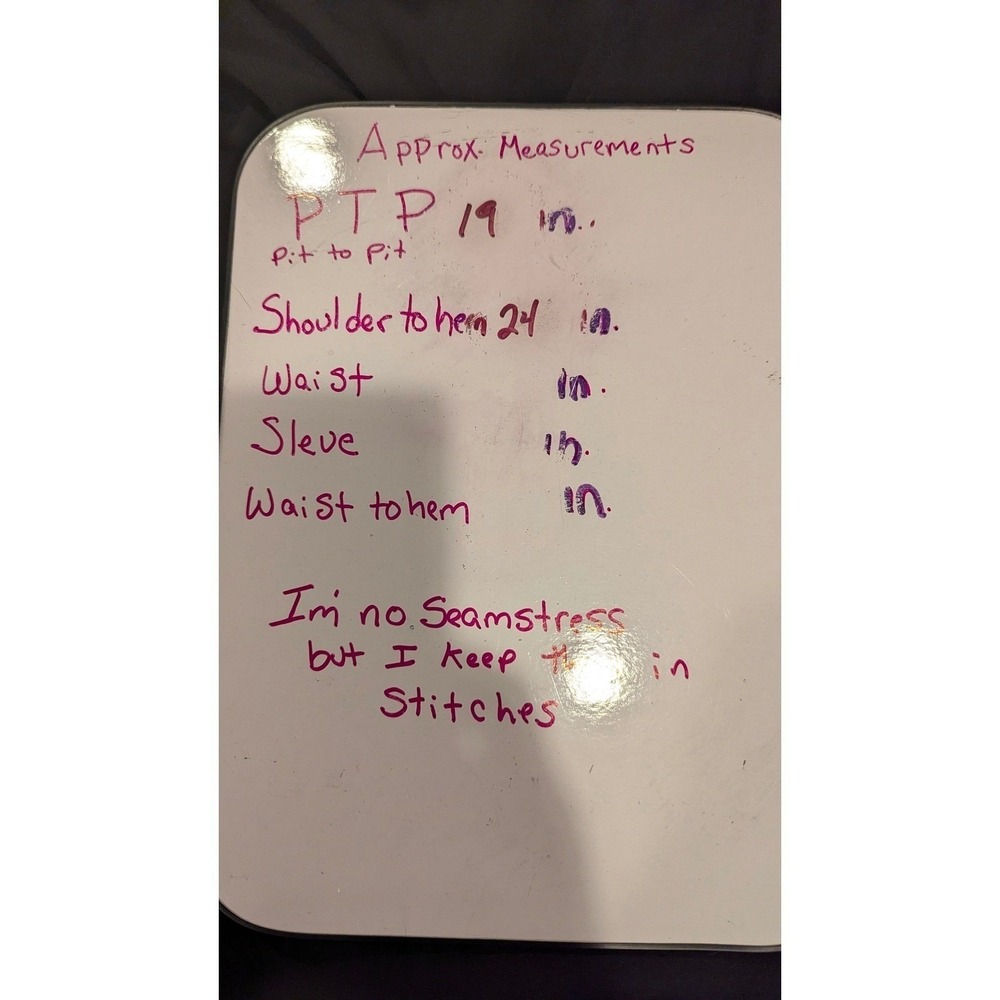 Approx. Measurements
PTP 19 in..
Pit to pit
Shoulder to hem 24 in.
Waist in.
Sleve in.
Waist to hem in.
Im' no Seamstress
but I keep in
Stitches